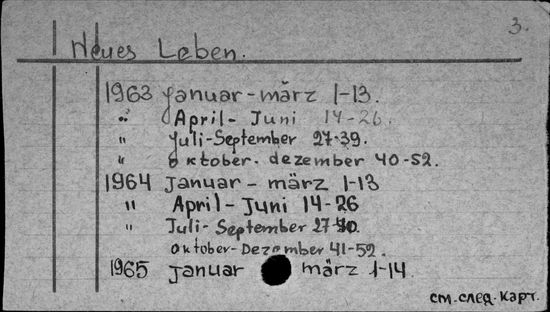 3.
Neues Leben.
1963 Januar - märz 1-13.
" April - Juni 14-26.
" Juli-September 27-39.
" oktober. dezember 40-52.
1964 Januar - märz 1-13
" April - Juni 14-26
" Juli- September 27-40.
oktober-Dezember 41-52.
1965 Januar märz 1-14.
см. след. карт.